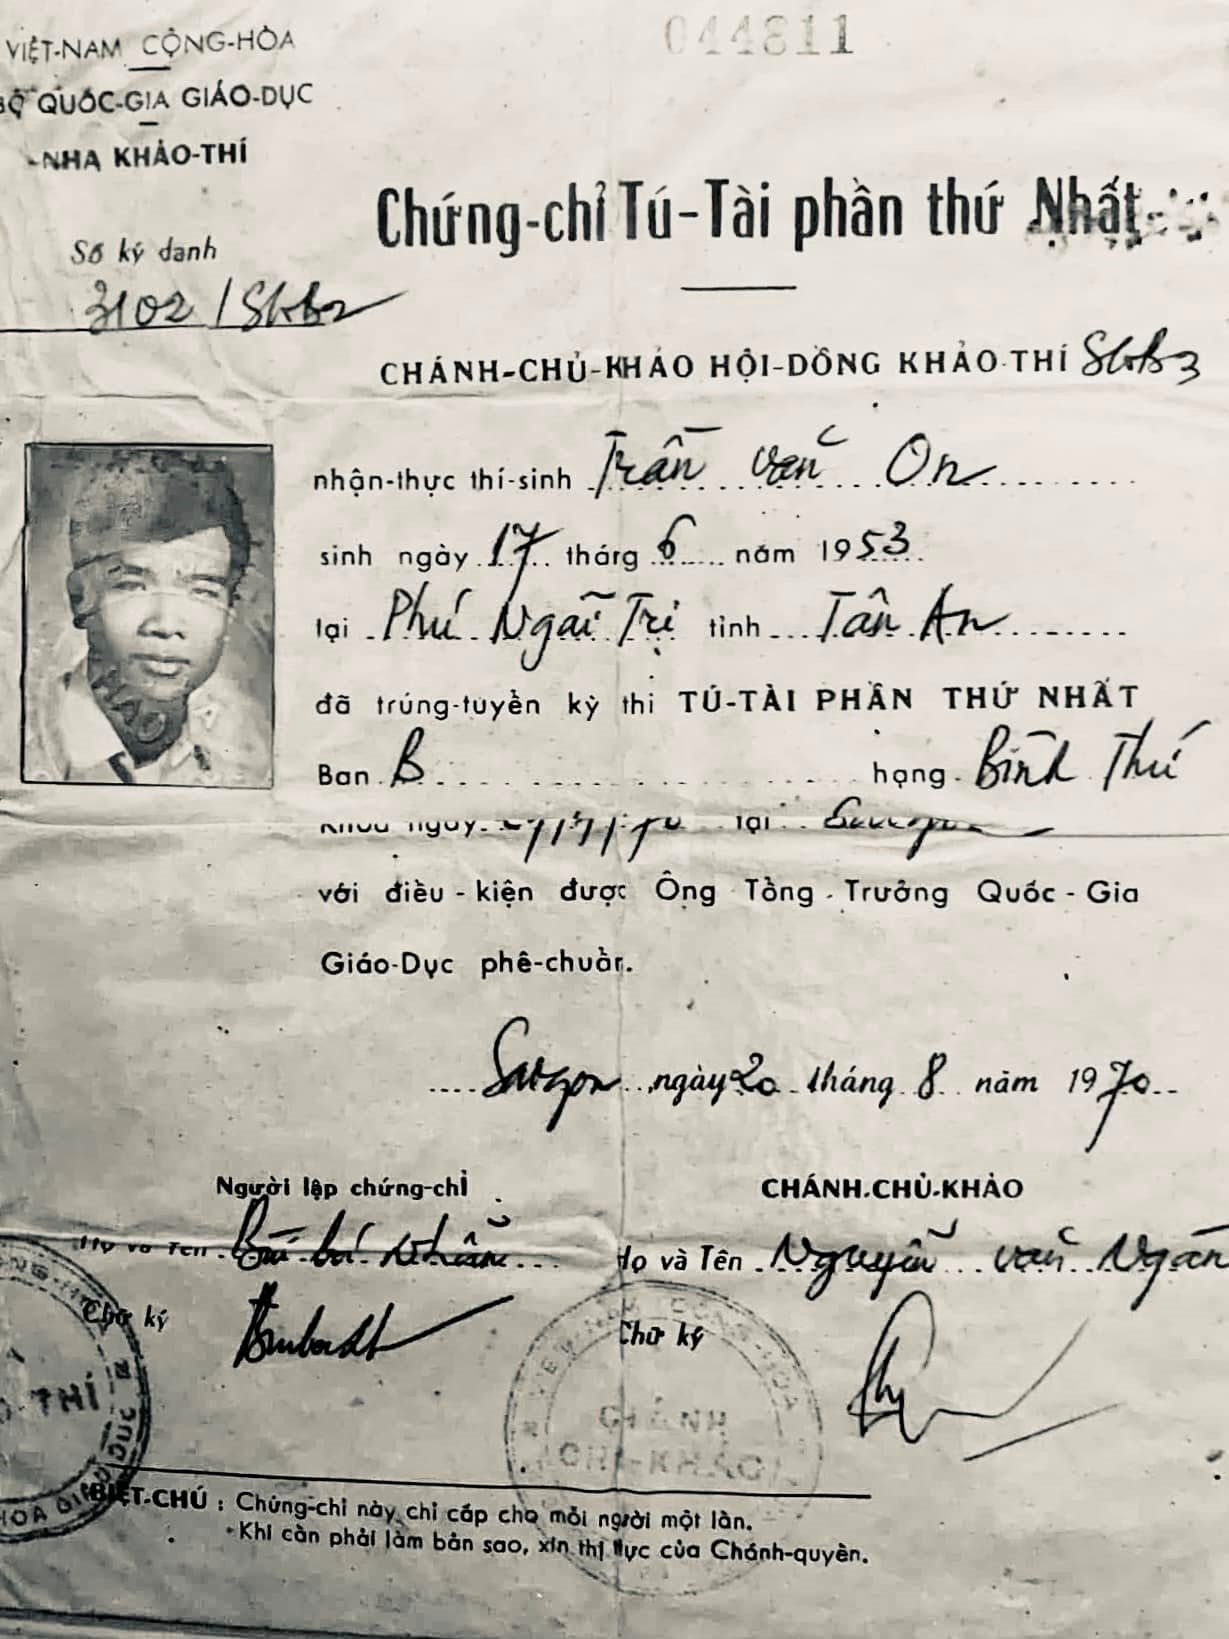 VIỆT-NAM CỘNG-HÒA
BỘ QUỐC-GIA GIÁO-DỤC
NHA KHẢO-THÍ
044811
Chứng-chỉ Tú-Tài phần thứ Nhất
Số ký danh
3102 /
CHÁNH-CHỦ-KHẢO HỘI-DỒNG KHẢO-THÍ
nhận-thực thí-sinh Trần văn On
sinh ngày 17 tháng 6 năm 1953
tại Phú Ngãi Trị tỉnh Tân An
đã trúng-tuyển kỳ thi TÚ-TÀI PHẦN THỨ NHẤT
Ban B hạng Bình Thứ
Khóa ngày tại Saigon
với điều-kiện được Ông Tổng-Trưởng Quốc-Gia
Giáo-Dục phê-chuẩn.
Saigon ngày 20 tháng 8 năm 1970
Người lập chứng-chỉ
CHÁNH-CHỦ-KHẢO
Họ và Tên
Họ và Tên Nguyễn văn Ngan
Chữ ký
Chữ ký
VIỆT-NAM CỘNG-HÒA
CHÁNH
CHỦ-KHẢO
THÍ
BIỆT-CHÚ : Chứng-chỉ này chỉ cấp cho mỗi người một lần.
Khi cần phải làm bản sao, xin thị thực của Chánh-quyền.